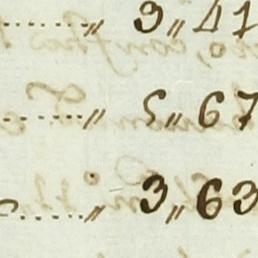 ........ „ 3 „ 41
........ „ 5 „ 67
........ „ 3 „ 63